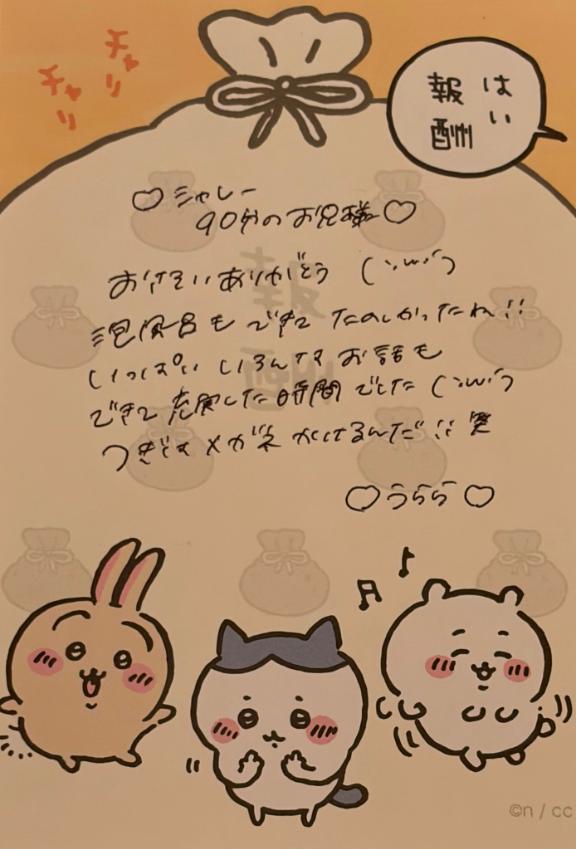 チャリ
チャリ
はい
報酬
♡シャレー
90分のお兄様♡
おけそいありがとう (´ω`)
泡風呂もできてたのしかったね!!
いっぱいいろんなお話も
できて充実した時間でした (´ω`)
つぎはメガネかけるんだ!!笑
♡うらら♡
報酬
©n / cc